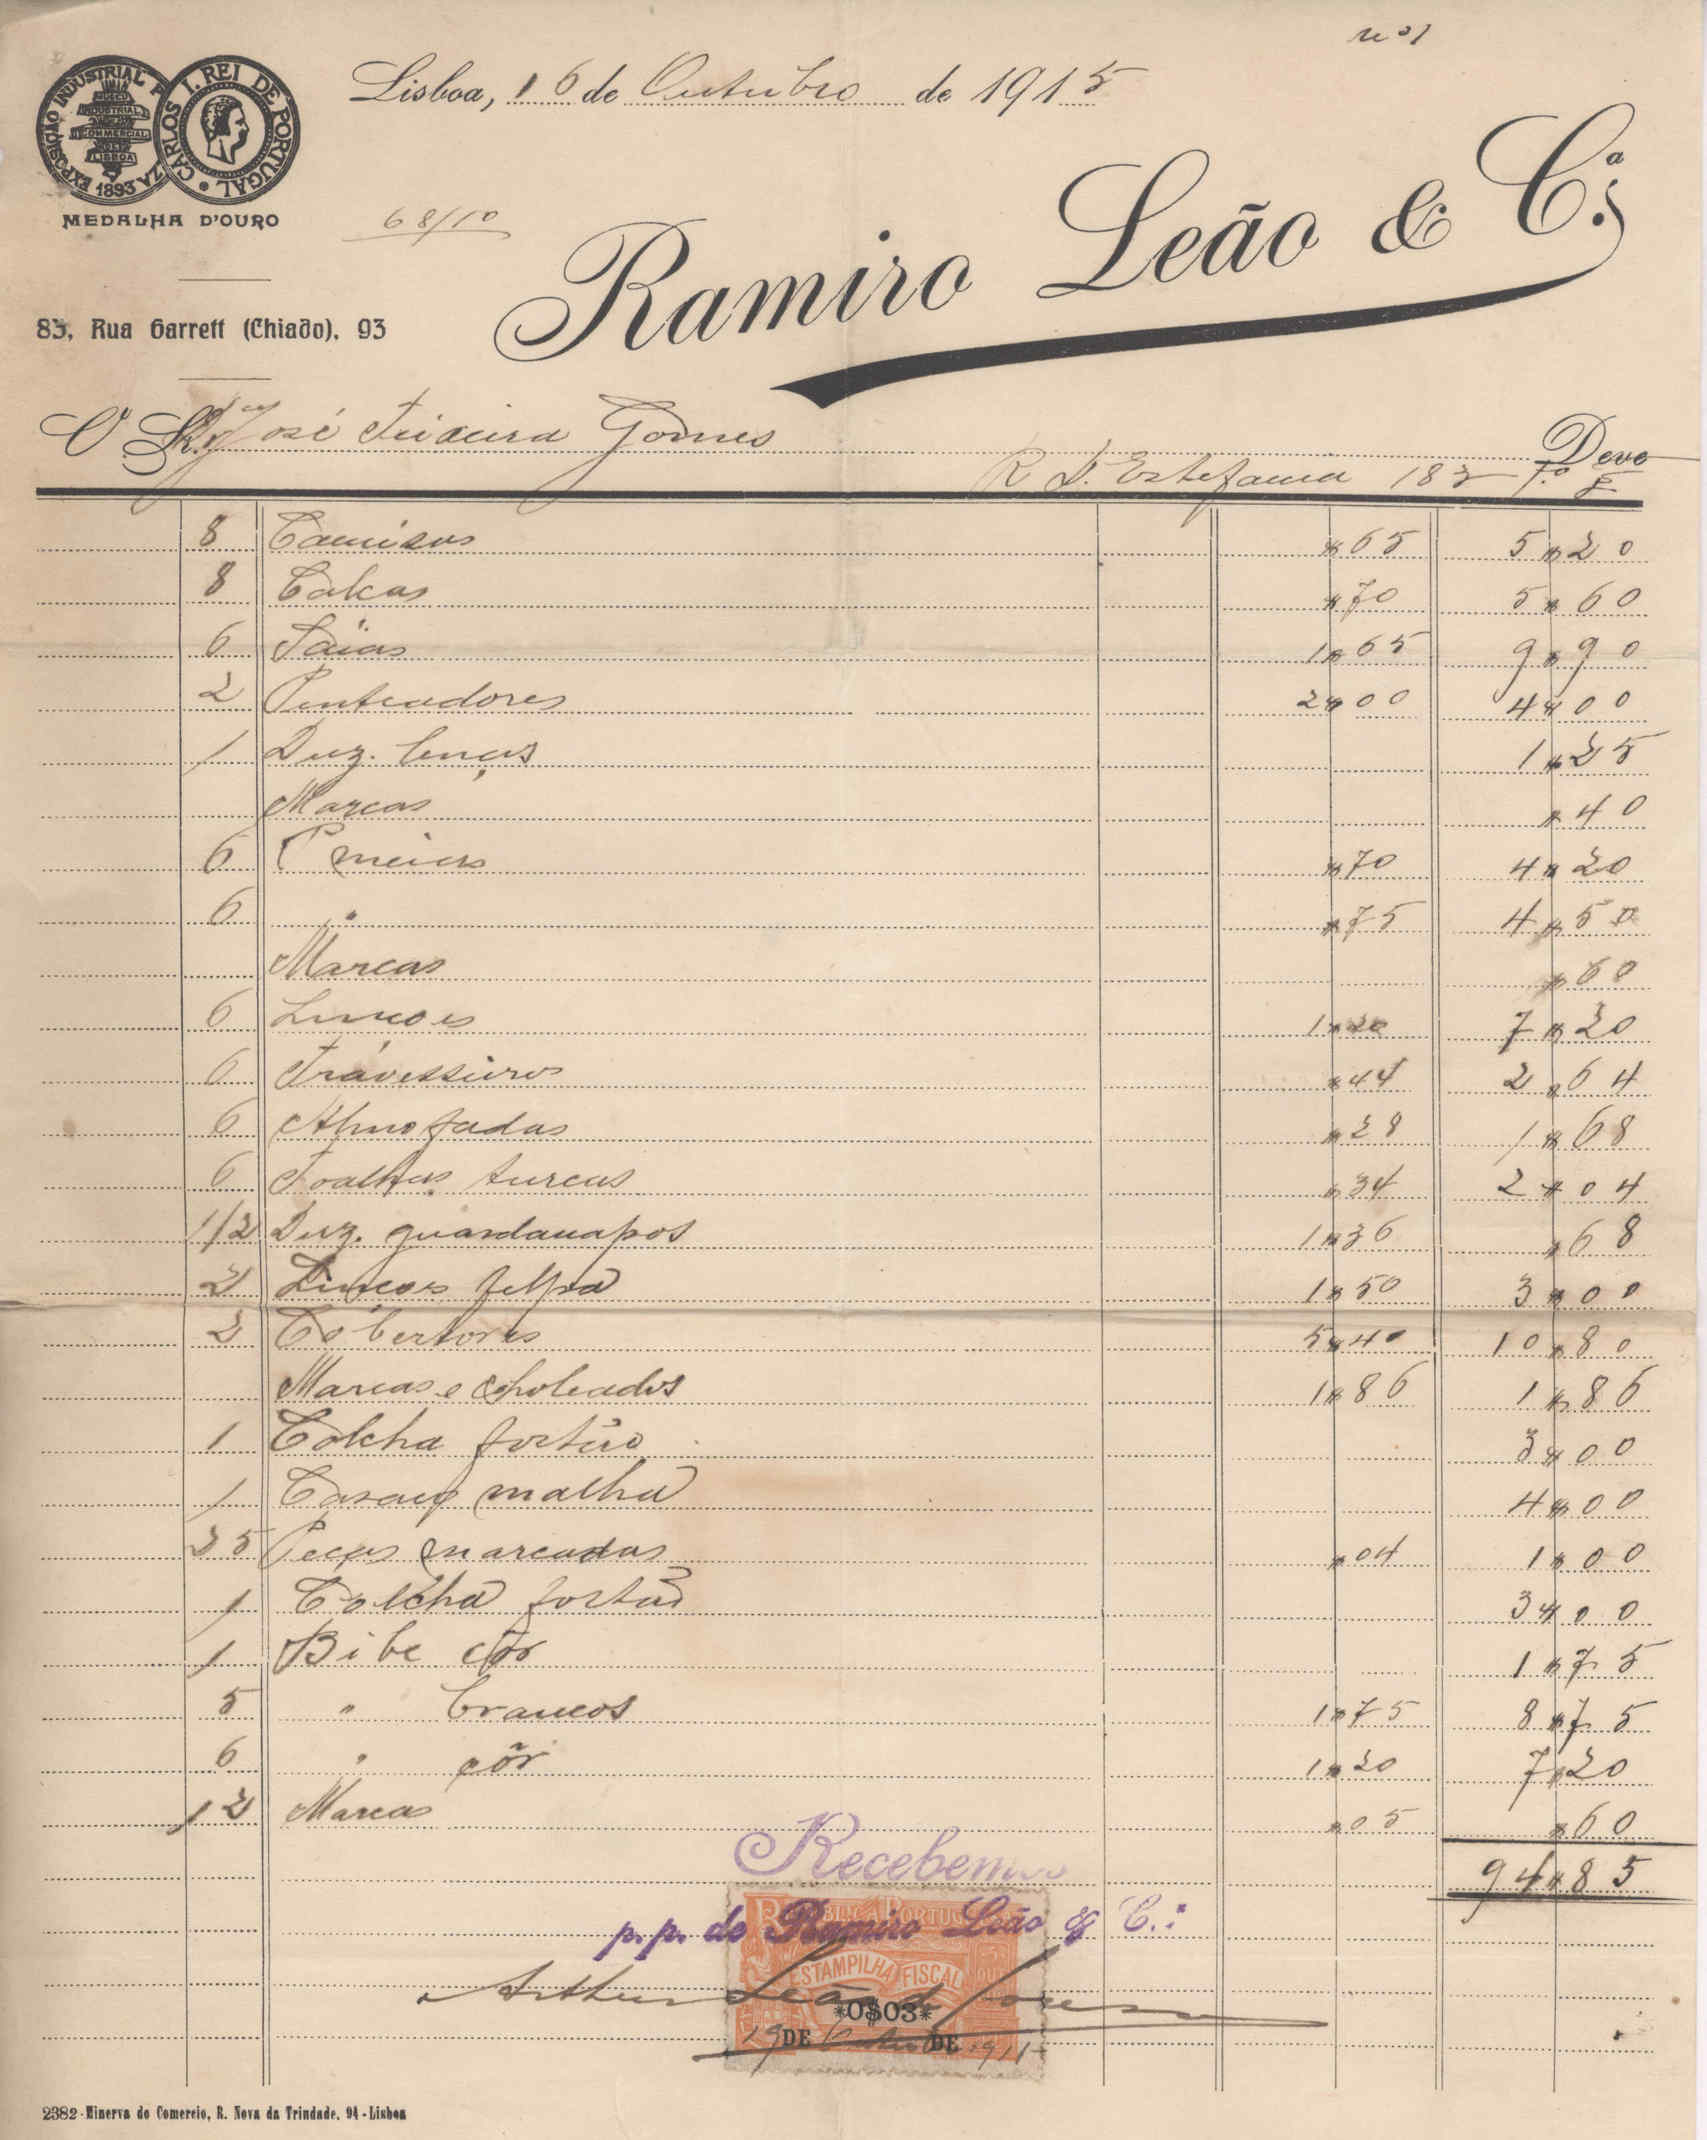 nº 1
Lisboa, 16 de Outubro de 1915
EXPOSIÇÃO INDUSTRIAL
1893
LISBOA
CARLOS I. REI DE PORTUGAL
MEDALHA D'OURO
68/10
Ramiro Leão & C.ª
83, Rua Garrett (Chiado), 93
O Sr. José Teixeira Gomes
Deve
R D. Estefania 183 1.º E
8 Camisas $65 5$20
8 Calcas $70 5$60
6 Saias 1$65 9$90
2 Penteadores 2$00 4$00
1 Duz. lenços 1$25
Marcas $40
6 P meias $70 4$20
6 " $75 4$50
Marcas $60
6 Lençoes 1$20 7$20
6 Travesseiros $44 2$64
6 Almofadas $28 1$68
6 Toalhas turcas $34 2$04
1/2 Duz. guardanapos 1$36 $68
2 Lençoes felpa 1$50 3$00
2 Cobertores 5$40 10$80
Marcas e 1$86 1$86
1 Colcha fustão 3$00
1 Casaco malha 4$00
25 Peças marcadas $04 1$00
1 Colcha fustão 3$00
1 Bibe côr 1$75
5 " brancos 1$75 8$75
6 " côr 1$20 7$20
12 Marcas $05 $60
94$85
Recebemos
p.p. de Ramiro Leão & C.ª
REPUBLICA PORTUGUESA
ESTAMPILHA FISCAL
*0$03*
19 DE Outubro DE 1915
2382 - Minerva do Comercio, R. Nova da Trindade, 94 - Lisboa